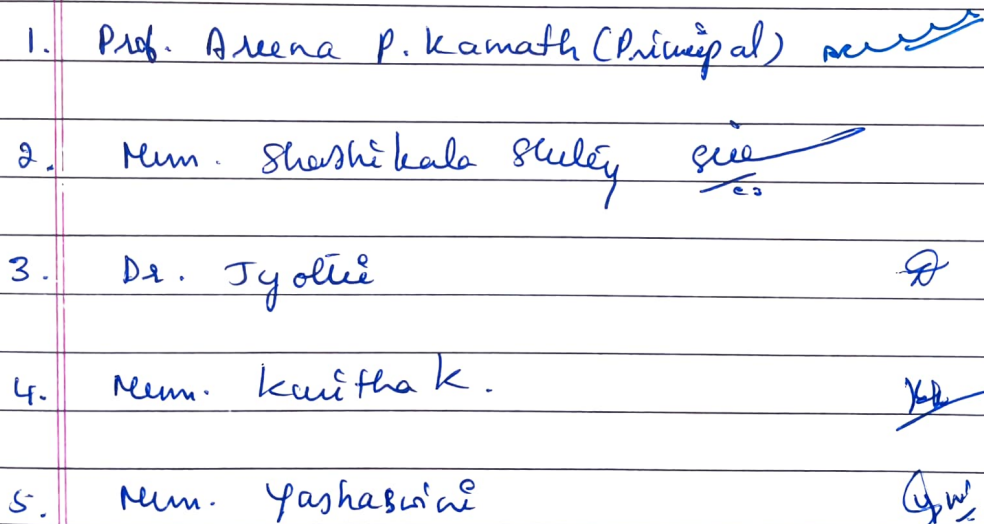 1. Prof. Areena P. Kamath (Principal)
2. Mum. Shashikala
3. Dr. Jyothi
4. Mum. Kavitha K.
5. Mum. Yashaswini